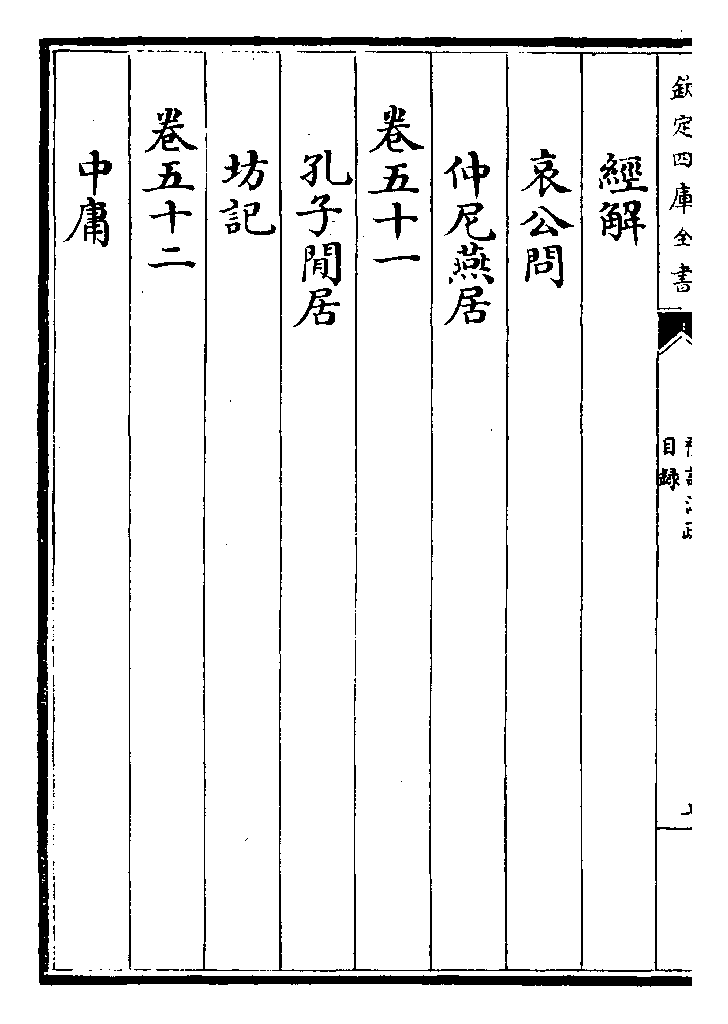 欽定四庫全書
目録
經解
哀公問
仲尼燕居
卷五十一
孔子閒居
坊記
卷五十二
中庸